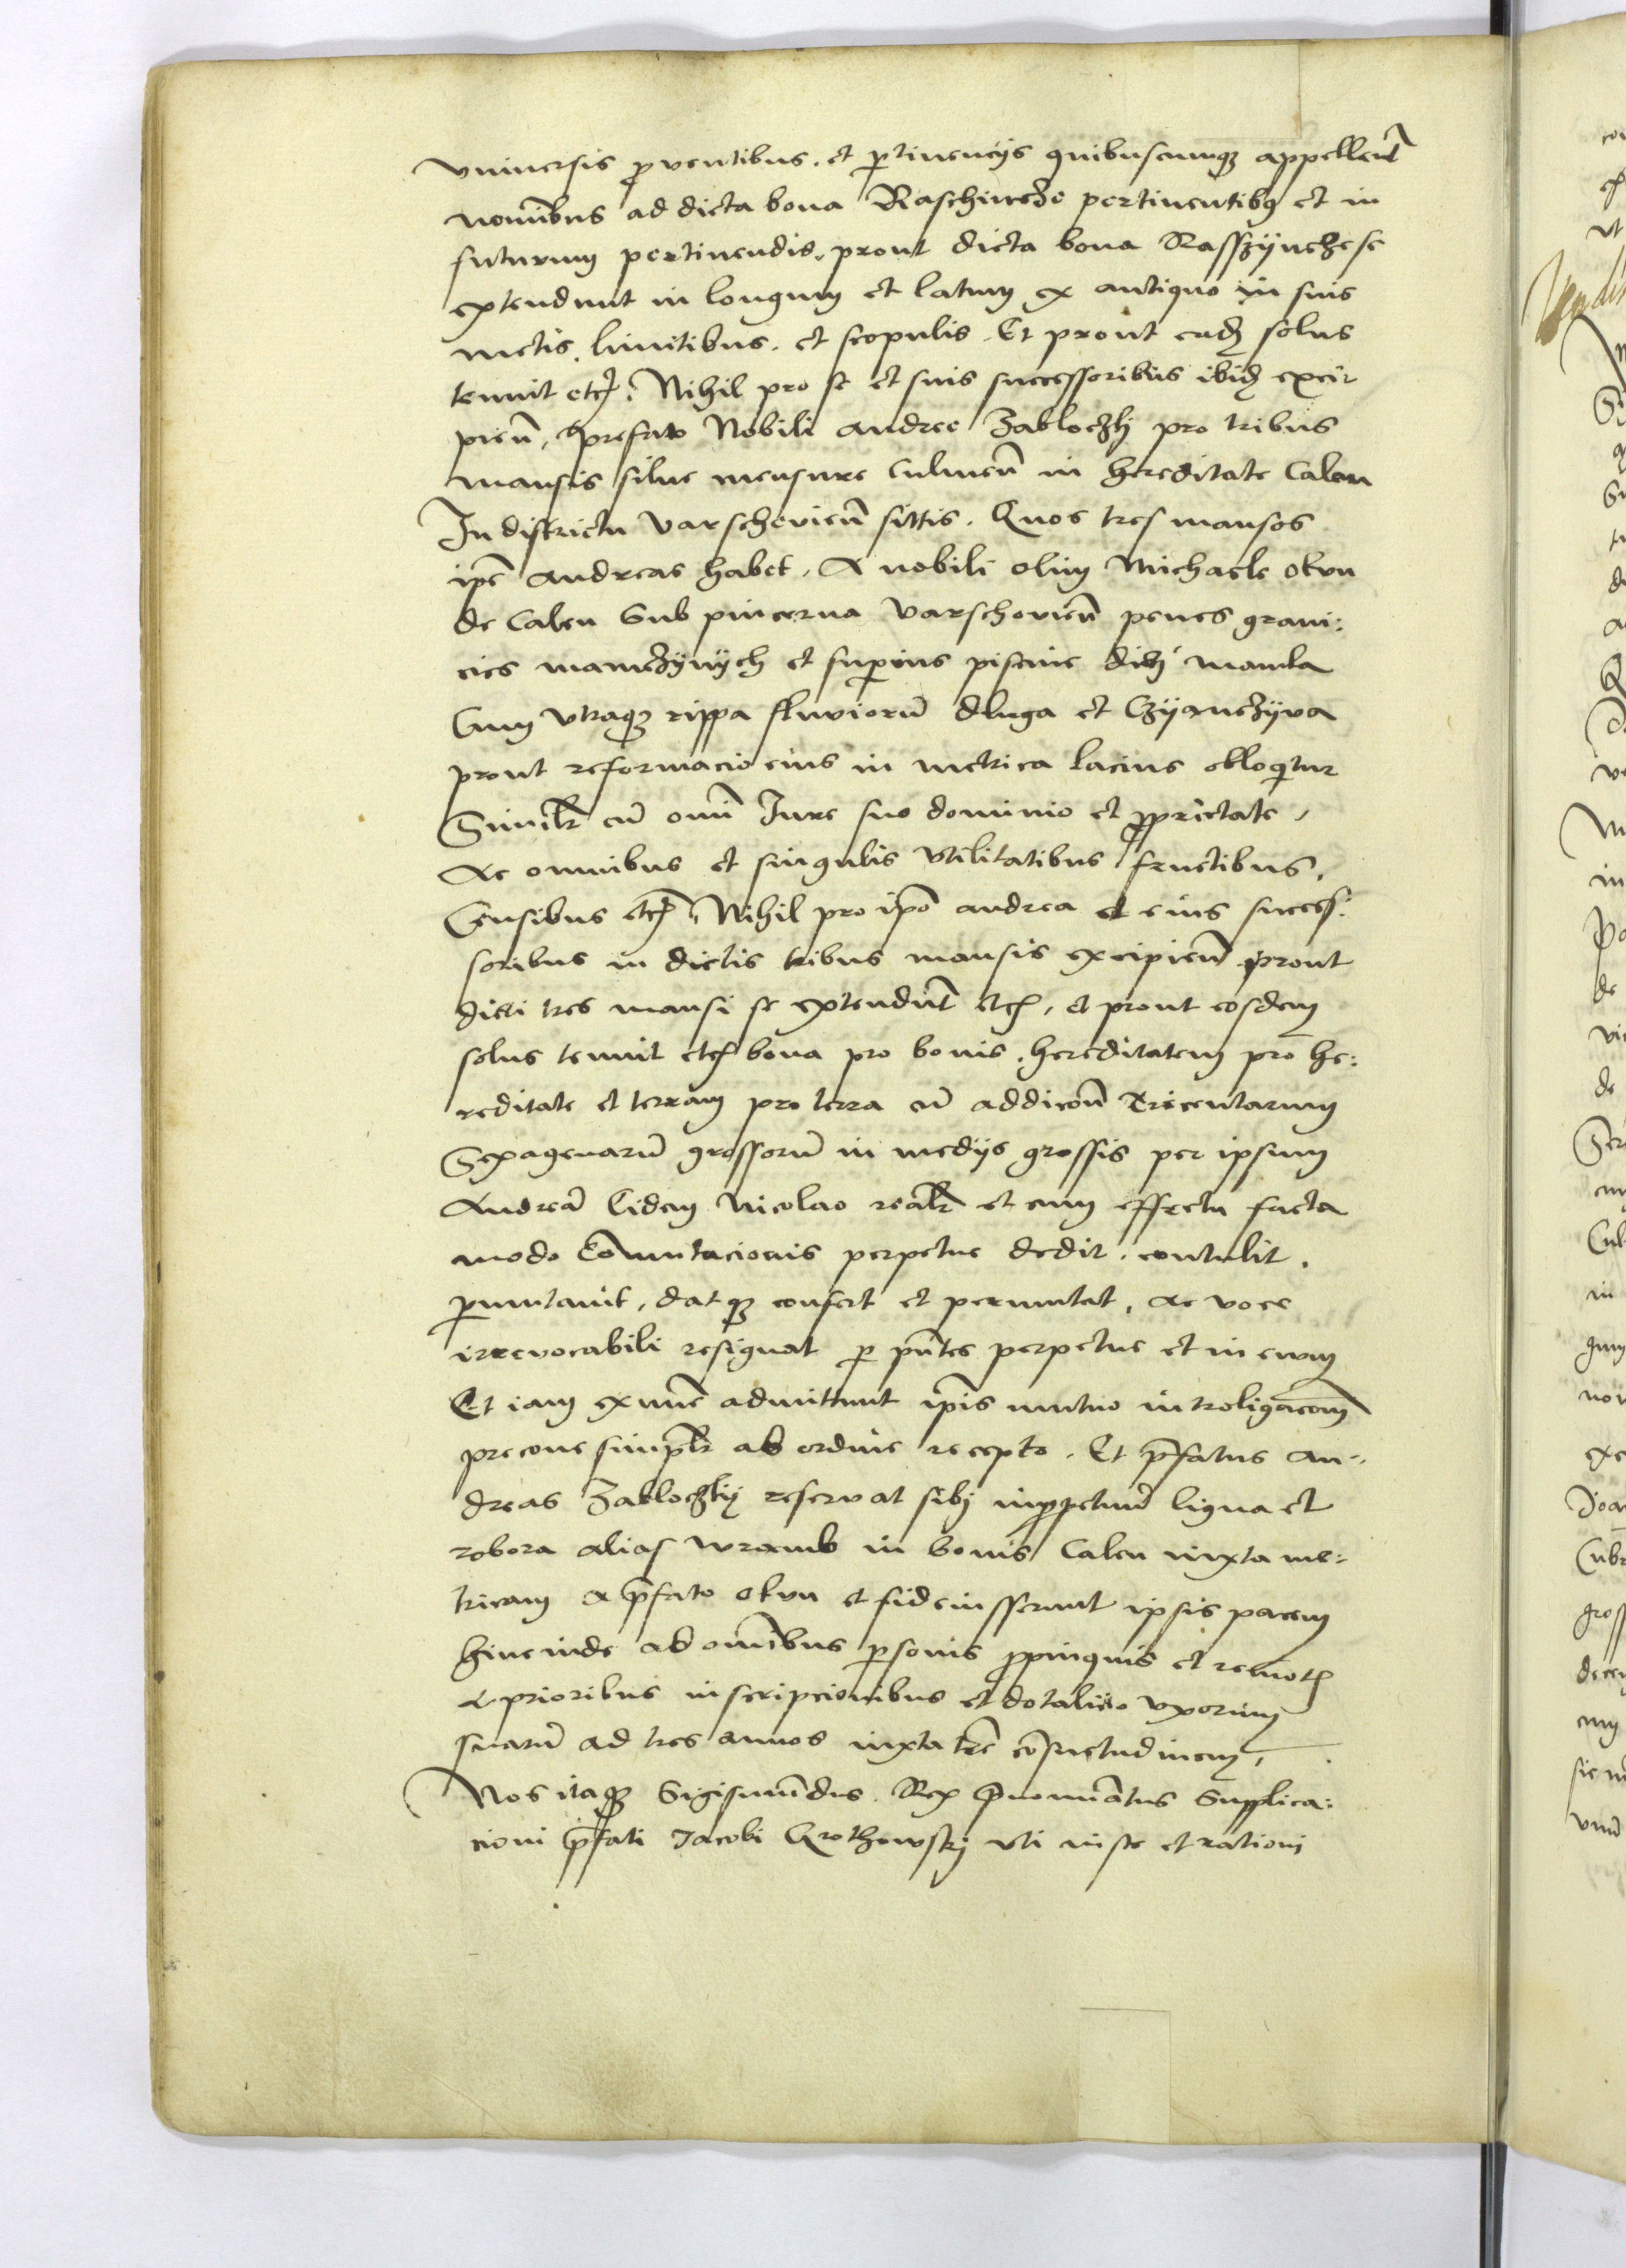 vniuersis proventibus. et pertinencijs quibuscumqꝫ appellent̄
nominibus ad dicta bona Raschincze pertinentibꝯ et in
futurum pertinendis, prout dicta bona Rasszÿncze se
extendunt in longum et latum ex antiquo in suis
metis, limitibus. et scopulis. Et prout eadꝫ solus
tenuit etcꝭ. Nihil pro se et suis successoribus ibidꝫ exci-
pien̄, prefato Nobili andree Zabloczkj pro tribus
mansis silue mensure culmen̄ in hereditate Calen
In districtu varschovien̄ sittis. Quos tres mansos
ip̄e andreas habet, A nobili olim Michaele okvn
de Calen Sub pincerna varschovien̄ penes grani:
cies mamczÿnÿch et superius piscine dictꝫ mamka
Cum vtraqꝫ rippa fluviorū dluga et Czÿanczÿva
prout reformacio eius in metrica lacius obloqitur
Similr̄ cū omni Jure suo dominio et proprietate,
Ac omnibus et singulis vtilitatibus fructibus,
Censibus etcꝭ. Nihil pro ip̄o andrea et eius succes-
soribus in dictis tribus mansis excipien̄ prout
dicti tres mansi se extendūt etcꝭ, et prout eosdem
solus tenuit etcꝭ bona pro bonis, hereditatem pro he:
reditate et terram pro terra cū addicōn̄ Tricentarum
Sexagenarū grossorū in medijs grossis per ipsum
Andreā Eidem Nicolao realr̄ et cum effectu facta
modo Cōmutacionis perpetue dedit. contulit.
permutauit, dat qꝫ confert et permutat, ac voce
irrevocabili resignat per pn̄tes perpetue et in ewm
Et iam exnunc admittunt ip̄is mutuo introligacōm̄
precone simplr̄ ab ordine recepto. Et p̄fatus an-
dreas Zabloczkÿ reservat sibj inperpetuū ligna et
robora alias wramb in bonis Calen iuxta me:
tricam a p̄fato okvn et fideiusserunt ipsis pacem
hincinde ab omībus personis propinquis et remotꝭ
A prioribus inscripcionibus et dotalicio vxorum
suarū ad tres annos iuxta tr̄e cōsuetudinem,
Nos itaqꝫ Sigismūndus. Rex Prenomīatus Supplica:
cioni p̄fati Jacobi Grothowskj vti iuste et rationi